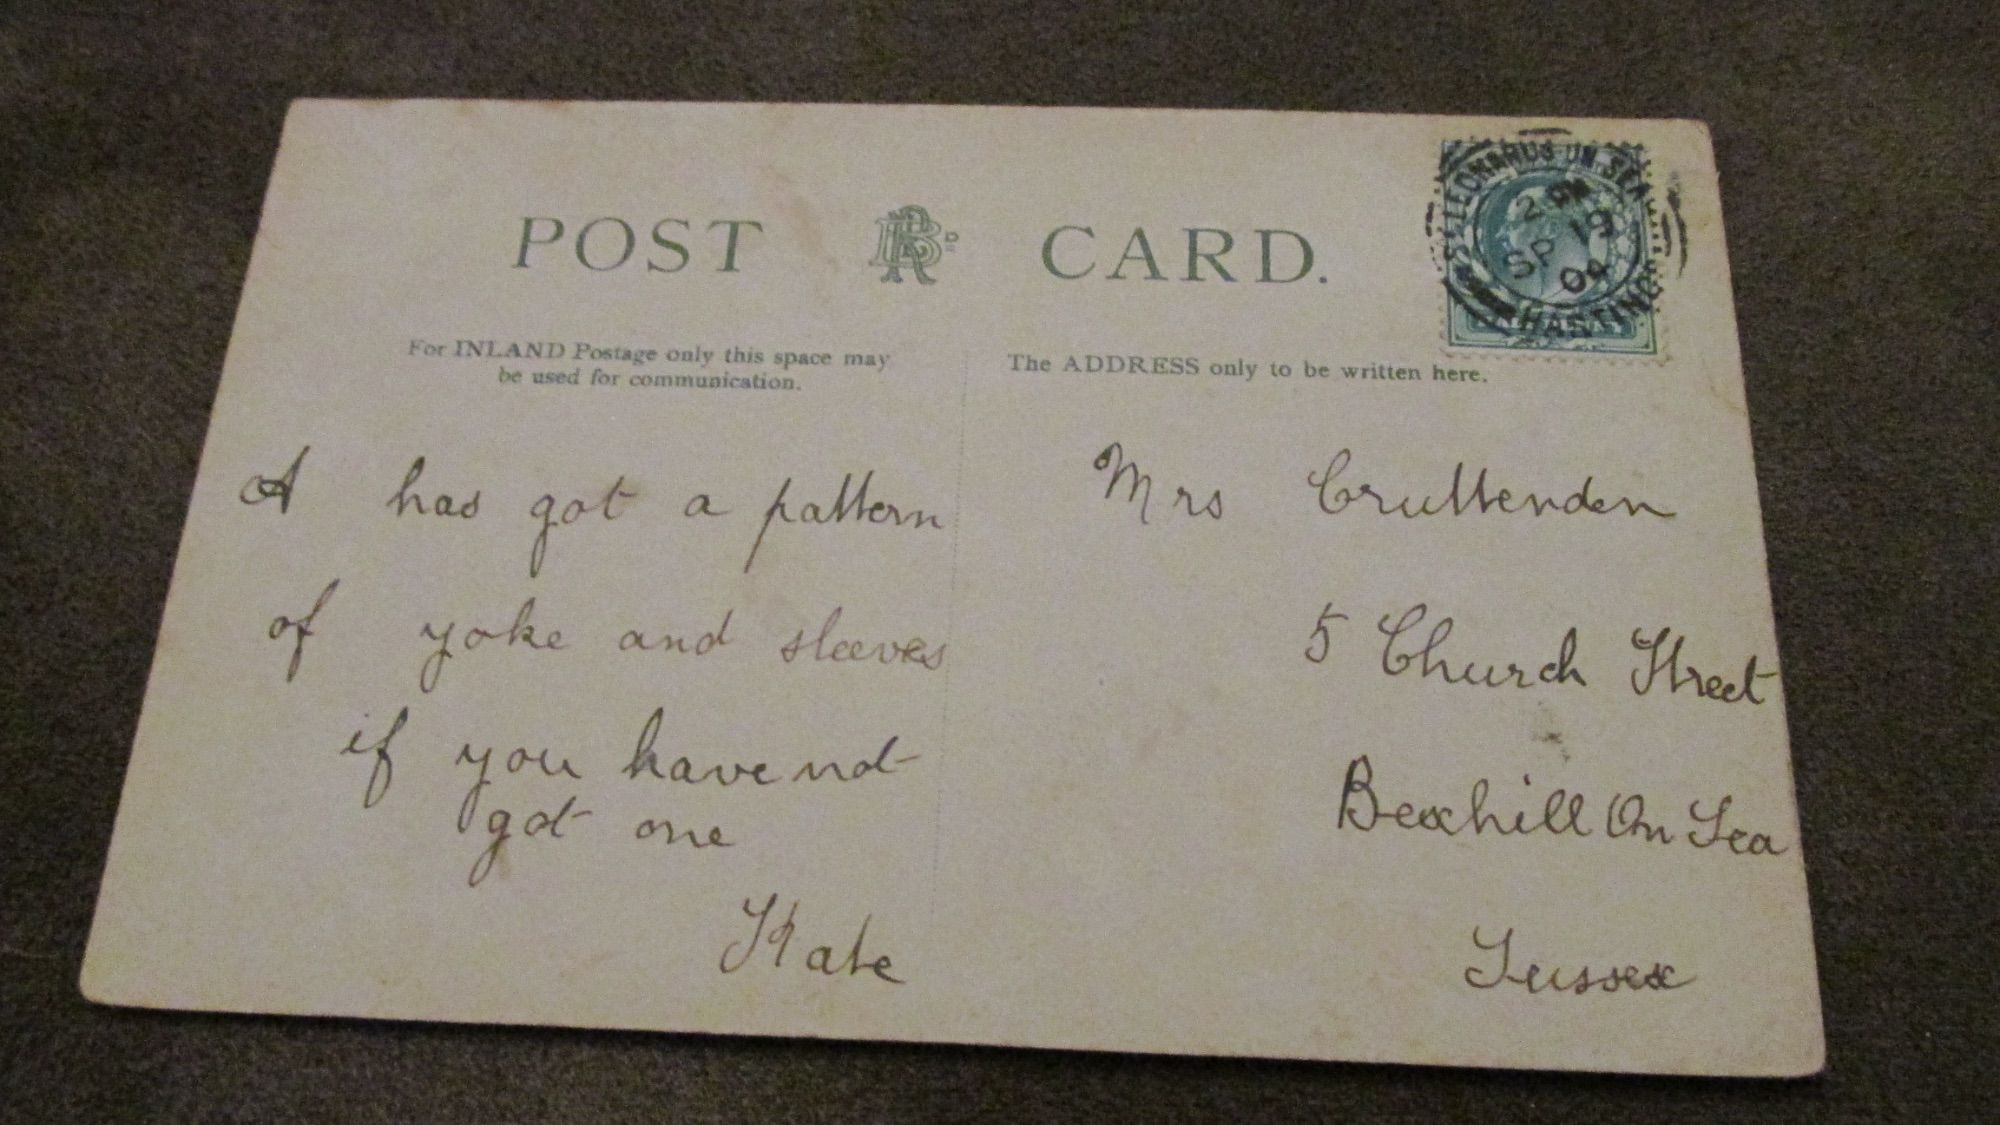 POST CARD.
For INLAND Postage only this space may
be used for communication.
The ADDRESS only to be written here.
ST LEONARDS-ON-SEA
SP 19
04
HASTINGS
A has got a pattern
of yoke and sleeves
if you have not
got one
Kate
Mrs Cruttenden
5 Church Street
Bexhill On Sea
Sussex